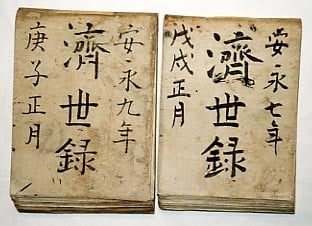 安永七年
濟世録
戊戌正月
安永九年
濟世録
庚子正月